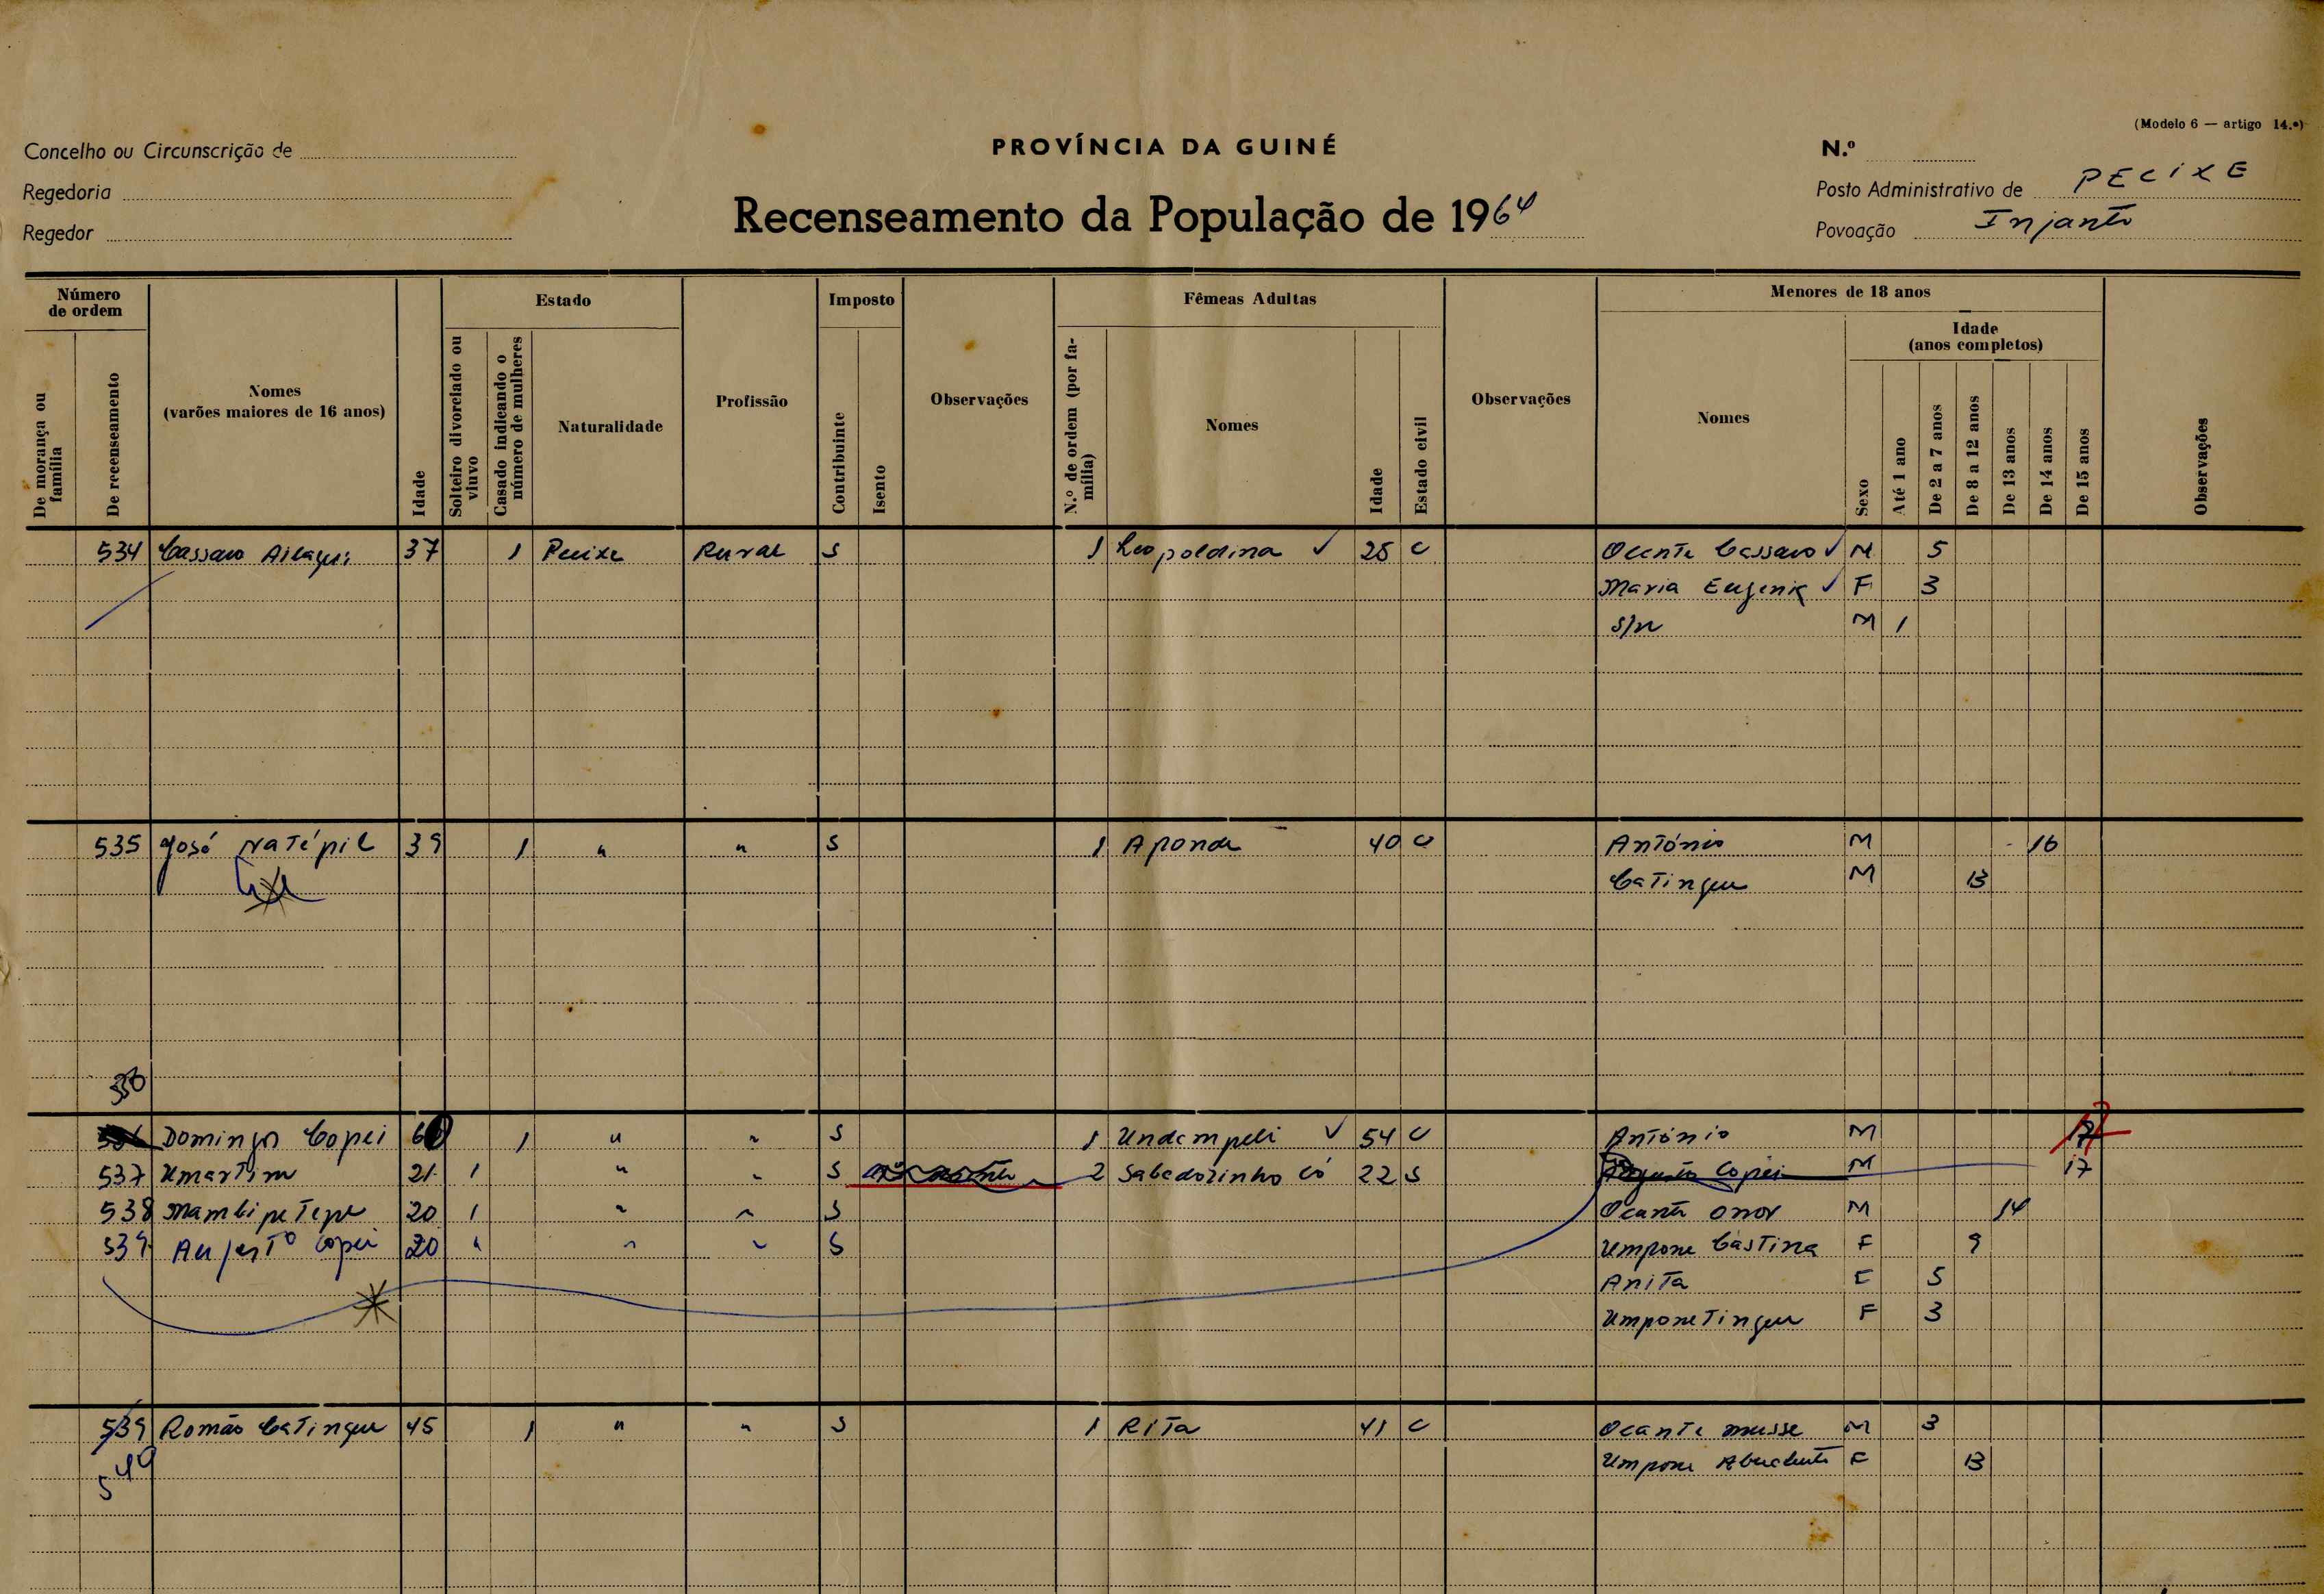 (Modelo 6 — artigo 14.º)
Concelho ou Circunscrição de
PROVÍNCIA DA GUINÉ
N.º
Regedoria
Posto Administrativo de PECIXE
Regedor
Recenseamento da População de 1964
Povoação Injante
Número de ordem
De morança ou família
De recenseamento
Nomes (varões maiores de 16 anos)
Idade
Estado
Solteiro divorciado ou viuvo
Casado indicando o número de mulheres
Naturalidade
Profissão
Imposto
Contribuinte
Isento
Observações
Fêmeas Adultas
N.º de ordem (por família)
Nomes
Idade
Estado civil
Observações
Menores de 18 anos
Nomes
Sexo
Idade (anos completos)
Até 1 ano
De 2 a 7 anos
De 8 a 12 anos
De 13 anos
De 14 anos
De 15 anos
Observações
534 Cassavo 37 1 Pecixe Rural S 1 Leopoldina ✓ 25 C Ocante Cassavo ✓ M 5
Maria Eugenia ✓ F 3
S/n M 1
535 José Natépil 39 1 " " S 1 Aponda 40 C António M 16
Catingue M 13
Domingos Copei 1 " " S 1 Undempeli ✓ 54 C António M 17
537 Umartim 21 1 " " S 2 Sabedozinho Có 22 S Augusto Copei M 17
538 Mambipetepe 20 1 " " S Ocante onor M 14
539 Augusto Copei 20 " " " S Umpone Castina F 9
Anita F 5
Umpone Tingue F 3
539 Romão Catingue 45 1 " " S 1 Rita 41 C Ocante musse M 3
540 Umpone F 13